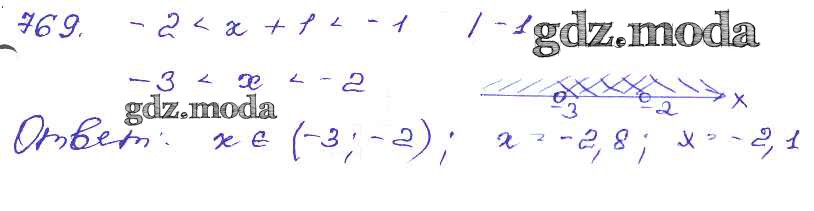 769. -2 < x + 1 < -1 / -1 gdz.moda
-3 < x < -2
-3 -2 x
gdz.moda
Ответ: x ∈ (-3; -2); x = -2,8; x = -2,1